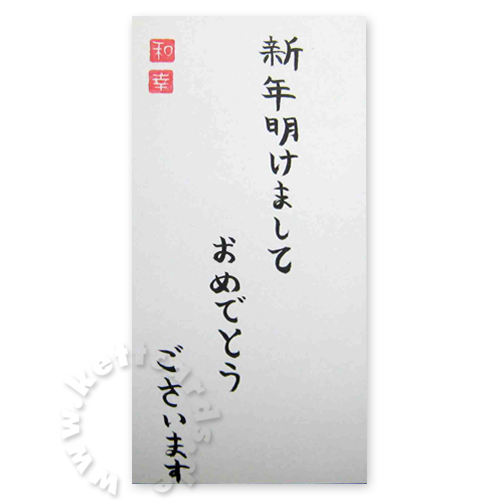 新年明けまして
おめでとう
ございます
和
幸